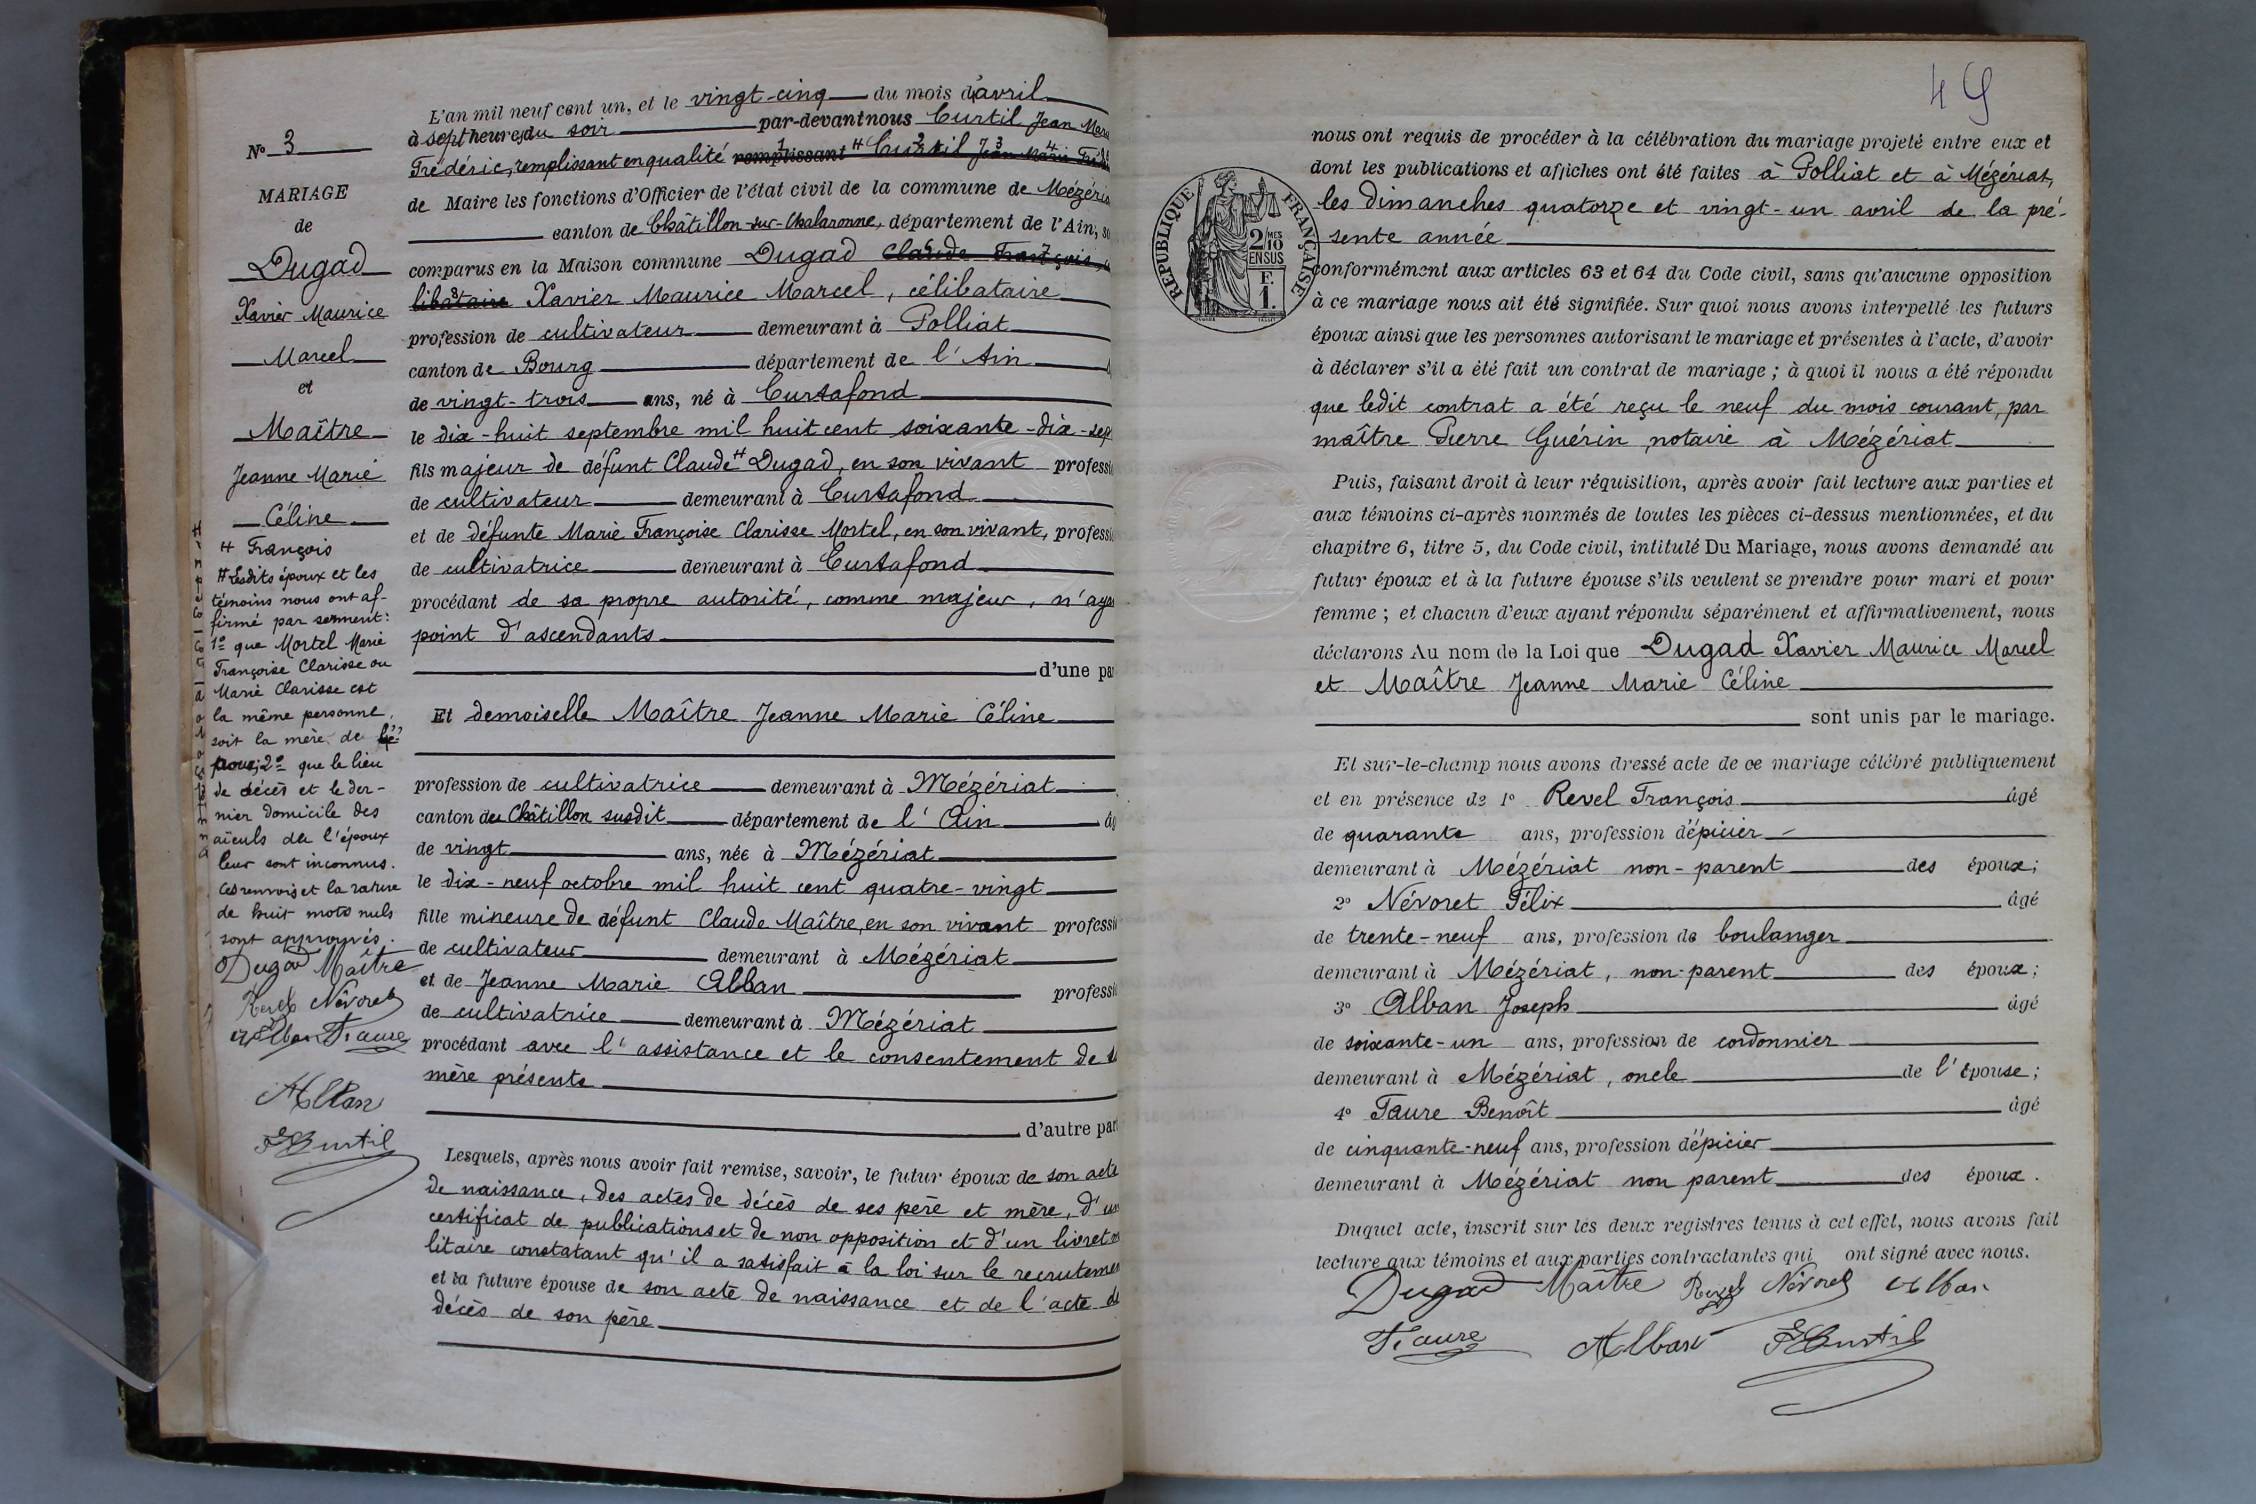 N° 3
MARIAGE
de
Dugad
Xavier Maurice
Marcel
et
Maître
Jeanne Marie
Céline
H François
# Lesdits époux et les
témoins nous ont af-
firmé par serment:
1° que Mortel Marie
Françoise Clarisse ou
Marie Clarisse est
la même personne,
soit la mère de l'é-
poux; 2° que le lieu
de décès et le der-
nier domicile des
aïeuls de l'époux
leur sont inconnus.
Ces renvois et la rature
de huit mots nuls
sont approuvés.
Dugad Maître
Revel Névoret
Alban Faure
Alban
F Curtil
L'an mil neuf cent un, et le vingt-cinq du mois d'avril
à sept heures du soir par-devant nous Curtil Jean Mar
Frédéric, remplissant en qualité remplissant H Curtil Jean Marie Fréd
de Maire les fonctions d'Officier de l'état civil de la commune de Mézéria
canton de Châtillon-sur-Chalaronne, département de l'Ain, so
comparus en la Maison commune Dugad Claude François,
libataire Xavier Maurice Marcel, célibataire
profession de cultivateur demeurant à Polliat
canton de Bourg département de l'Ain
de vingt-trois ans, né à Curtafond
le dix-huit septembre mil huit cent soixante-dix-sep
fils majeur de défunt Claude H Dugad, en son vivant professi
de cultivateur demeurant à Curtafond
et de défunte Marie Françoise Clarisse Mortel, en son vivant, professi
de cultivatrice demeurant à Curtafond
procédant de sa propre autorité, comme majeur, n'aya
point d'ascendants
d'une par
Et demoiselle Maître Jeanne Marie Céline
profession de cultivatrice demeurant à Mézériat
canton de Châtillon susdit département de l'Ain âg
de vingt ans, née à Mézériat
le dix-neuf octobre mil huit cent quatre-vingt
fille mineure de défunt Claude Maître, en son vivant professi
de cultivateur demeurant à Mézériat
et de Jeanne Marie Alban professi
de cultivatrice demeurant à Mézériat
procédant avec l'assistance et le consentement de s
mère présente
d'autre part
Lesquels, après nous avoir fait remise, savoir, le futur époux de son acte
de naissance, des actes de décès de ses père et mère, d'un
certificat de publications et de non opposition et d'un livret
litaire constatant qu'il a satisfait à la loi sur le recruteme
et la future épouse de son acte de naissance et de l'acte de
décès de son père
49
RÉPUBLIQUE FRANÇAISE
2/10 MES EN SUS
F. 1.
nous ont requis de procéder à la célébration du mariage projeté entre eux et
dont les publications et affiches ont été faites à Polliat et à Mézériat,
les dimanches quatorze et vingt-un avril de la pré-
sente année
conformément aux articles 63 et 64 du Code civil, sans qu'aucune opposition
à ce mariage nous ait été signifiée. Sur quoi nous avons interpellé les futurs
époux ainsi que les personnes autorisant le mariage et présentes à l'acte, d'avoir
à déclarer s'il a été fait un contrat de mariage ; à quoi il nous a été répondu
que ledit contrat a été reçu le neuf du mois courant, par
maître Pierre Guérin, notaire à Mézériat
Puis, faisant droit à leur réquisition, après avoir fait lecture aux parties et
aux témoins ci-après nommés de toutes les pièces ci-dessus mentionnées, et du
chapitre 6, titre 5, du Code civil, intitulé Du Mariage, nous avons demandé au
futur époux et à la future épouse s'ils veulent se prendre pour mari et pour
femme ; et chacun d'eux ayant répondu séparément et affirmativement, nous
déclarons Au nom de la Loi que Dugad Xavier Maurice Marcel
et Maître Jeanne Marie Céline
sont unis par le mariage.
Et sur-le-champ nous avons dressé acte de ce mariage célébré publiquement
et en présence de 1° Revel François âgé
de quarante ans, profession d'épicier
demeurant à Mézériat non-parent des époux;
2° Névoret Félix âgé
de trente-neuf ans, profession de boulanger
demeurant à Mézériat, non-parent des époux;
3° Alban Joseph âgé
de soixante-un ans, profession de cordonnier
demeurant à Mézériat, oncle de l'épouse;
4° Faure Benoît âgé
de cinquante-neuf ans, profession d'épicier
demeurant à Mézériat non parent des époux.
Duquel acte, inscrit sur les deux registres tenus à cet effet, nous avons fait
lecture aux témoins et aux parties contractantes qui ont signé avec nous.
Dugad Maître Revel Névoret Alban
Faure Alban F Curtil